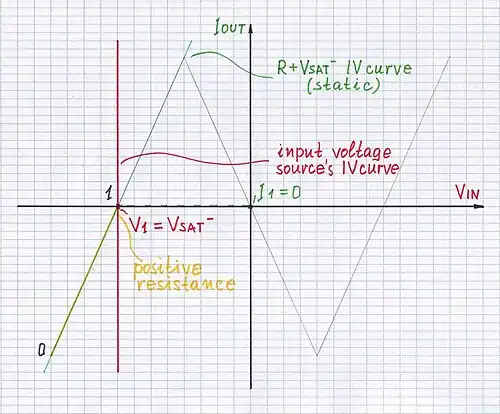 IOUT
R+VSAT⁻ IV curve
(static)
input voltage
source's IV curve
1
I1=0
VIN
V1=VSAT⁻
positive
resistance
0